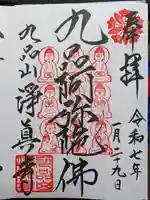 奉拝
令和七年
一月二十九日
九品阿弥陀佛
九品山浄真寺